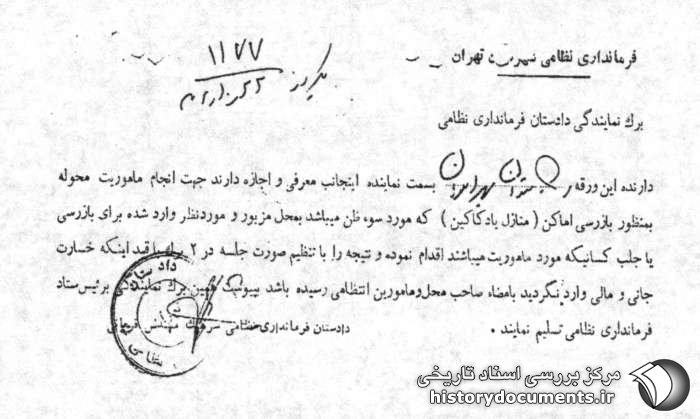 فرمانداری نظامی شهرستان تهران
۱۱۷۷
برك نمایندگی دادستان فرمانداری نظامی
دارنده این ورقه بسمت نماینده اینجانب معرفی و اجازه دارند جهت انجام ماموریت محوله
بمنظور بازرسی اماکن ( منازل یا دکاکین ) که مورد سوء ظن میباشد بمحل مزبور و موردنظر وارد شده برای بازرسی
یا جلب کسانیکه مورد ماموریت میباشند اقدام نموده و نتیجه را با تنظیم صورت جلسه در ۲ با قید اینکه خسارت
جانی و مالی وارد نگردید بامضاء صاحب محل و مامورین انتظامی رسیده باشد بپیوست همین برك نمایندگی برئیس ستاد
فرمانداری نظامی تسلیم نمایند .
دادستان فرمانداری نظامی سرهنگ مهندس
داد ستا
نظامی
مرکز بررسی اسناد تاریخی
historydocuments.ir